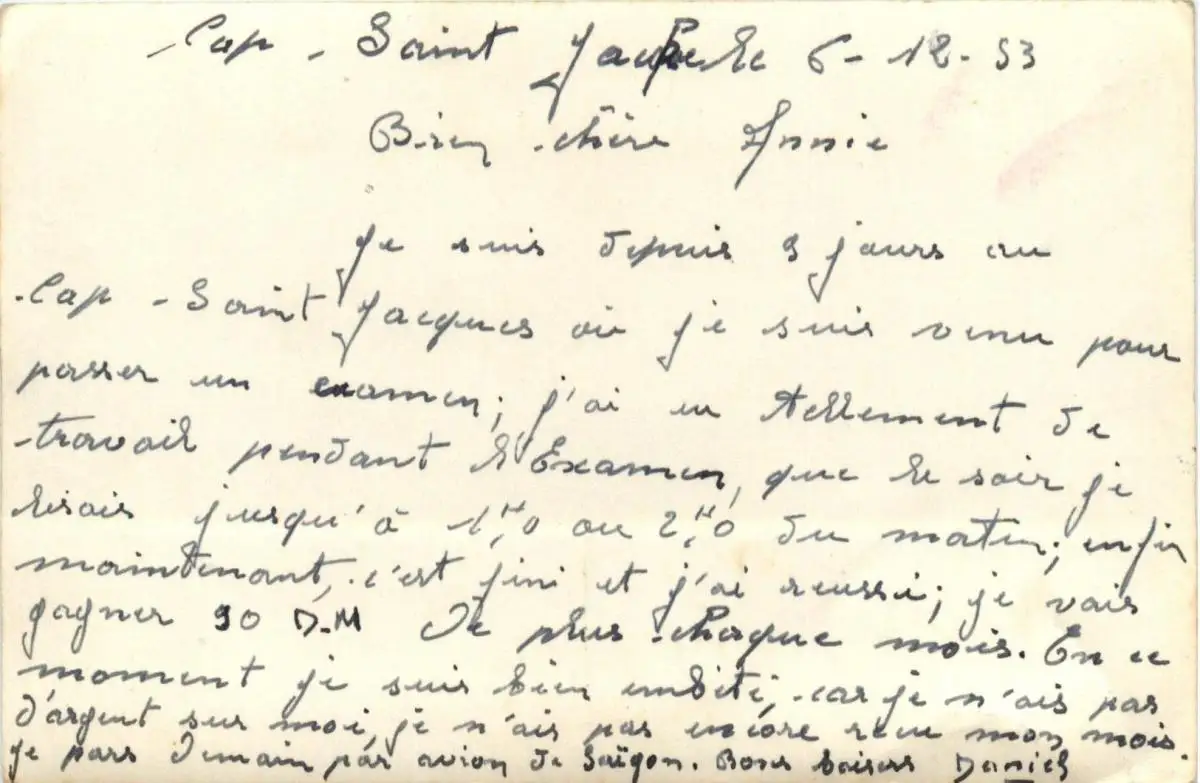 Cap - Saint Jacques le 6 - 12 - 53
Bien chère Annie
Je suis depuis 9 jours au
Cap - Saint Jacques où je suis venu pour
passer un examen; j'ai eu tellement de
travail pendant l'Examen, que le soir je
lisais jusqu'à 1H,0 ou 2H,0 du matin; enfin
maintenant, c'est fini et j'ai reussi; je vais
gagner 90 D.M de plus chaque mois. En ce
moment je suis bien embété, car je n'ais pas
d'argent sur moi, je n'ais pas encore recu mon mois.
je pars demain par avion de Saïgon. Bons baisers Daniel